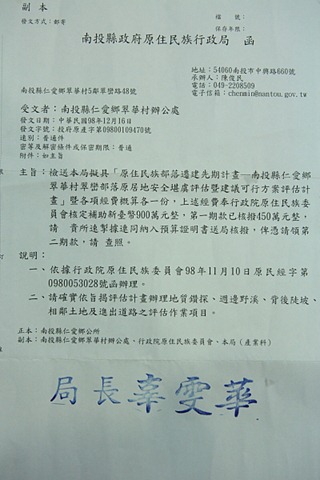 副本
發文方式：郵寄
檔　號：
保存年限：
南投縣政府原住民族行政局　函
地址：54060南投市中興路660號
承辦人：陳俊民
電話：049-2208509
電子信箱：chenmin@nantou.gov.tw
南投縣仁愛鄉翠華村5鄰翠巒路48號
受文者：南投縣仁愛鄉翠華村辦公處
發文日期：中華民國98年12月16日
發文字號：投府原產字第09800109470號
速別：普通件
密等及解密條件或保密期限：普通
附件：如主旨
主旨：檢送本局擬具「原住民族部落遷建先期計畫—南投縣仁愛鄉
翠華村翠巒部落原居地安全堪虞評估暨建議可行方案評估計
畫」暨各項經費概算各一份，上述經費奉行政院原住民族委
員會核定補助新臺幣900萬元整，第一期款已核撥450萬元整，
請　貴所速掣據連同納入預算證明書送局核撥，俾憑請領第
二期款，請　查照。
說明：
一、依據行政院原住民族委員會98年11月10日原民經字第
0980053028號函辦理。
二、請確實依旨揭評估計畫辦理地質鑽探、週邊野溪、背後陡坡、
相鄰土地及進出道路之評估作業項目。
正本：南投縣仁愛鄉公所
副本：南投縣仁愛鄉翠華村辦公處、行政院原住民族委員會、本局（產業科）
局長辜雯華